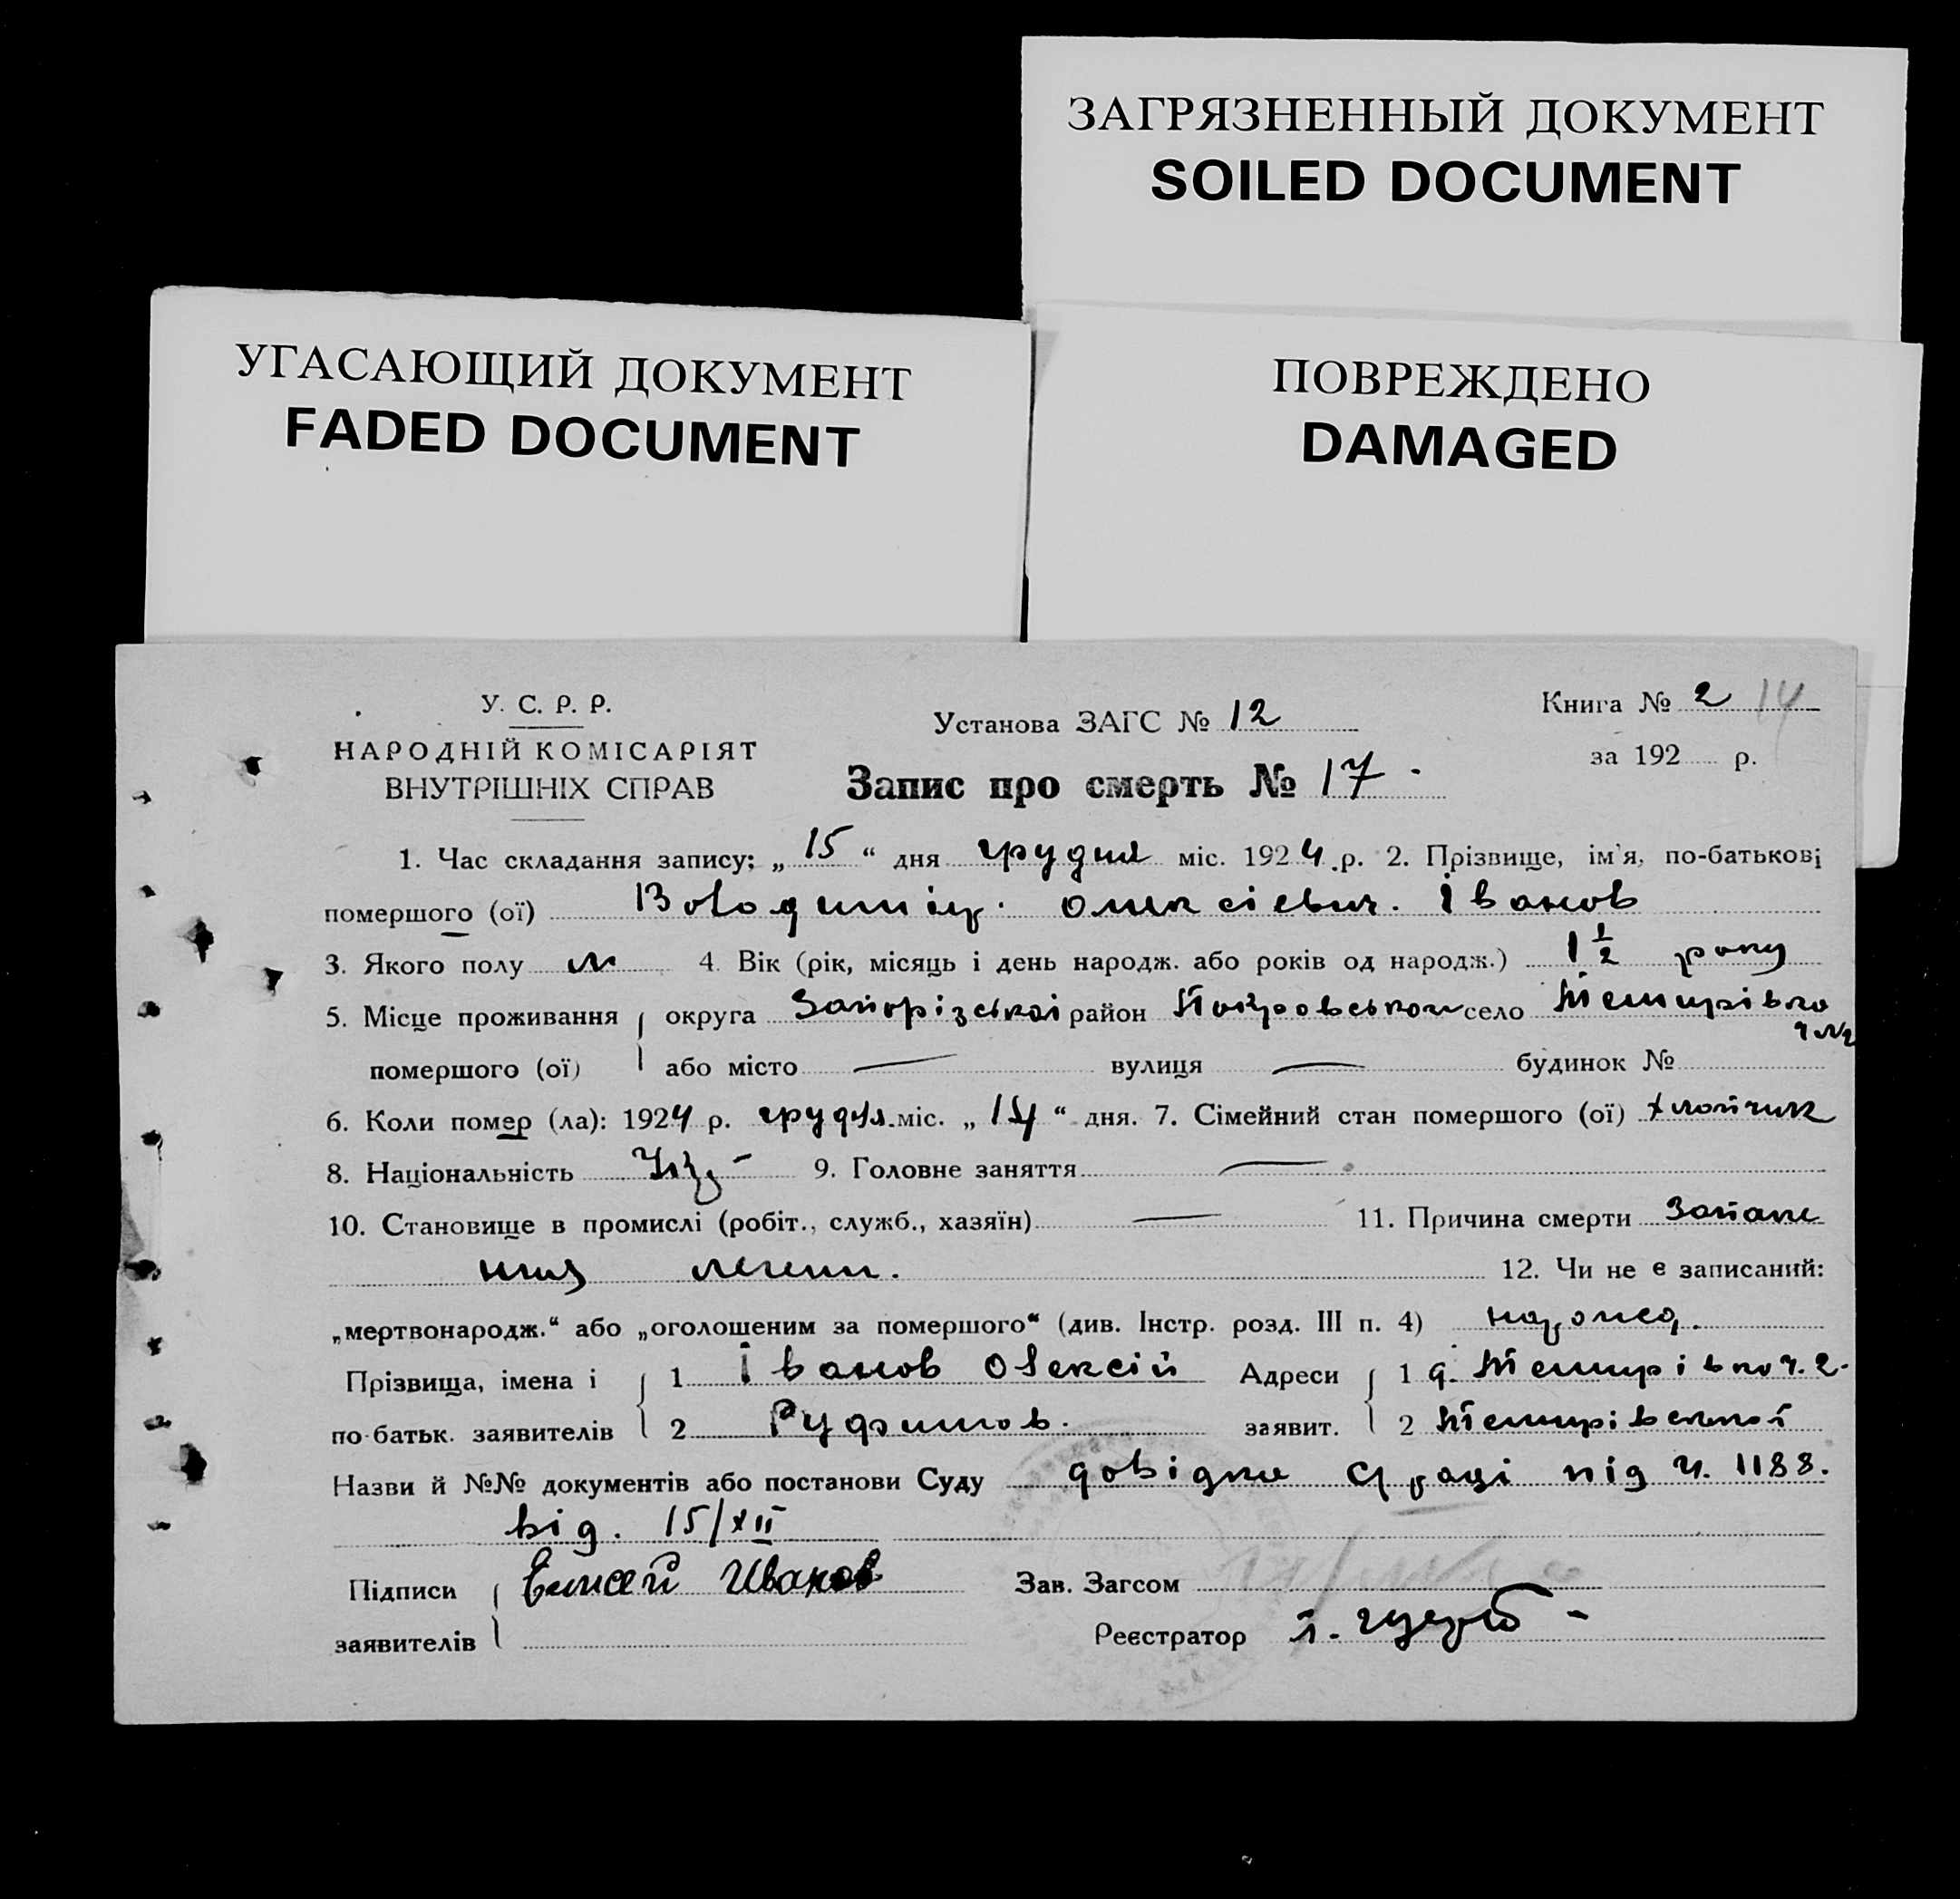 ЗАГРЯЗНЕННЫЙ ДОКУМЕНТ
SOILED DOCUMENT
УГАСАЮЩИЙ ДОКУМЕНТ
FADED DOCUMENT
ПОВРЕЖДЕНО
DAMAGED
У. С. Р. Р.
НАРОДНІЙ КОМІСАРІЯТ
ВНУТРІШНІХ СПРАВ
Установа ЗАГС № 12
Запис про смерть № 17
Книга № 2 14
за 192 р.
1. Час складання запису: „15“ дня грудня міс. 1924 р. 2. Прізвище, ім'я, по-батькові
помершого (ої) Володимір Олексієвич. Іванов
3. Якого полу м 4. Вік (рік, місяць і день народж. або років од народж.) 1 1/2 року
5. Місце проживання округа Запорізської район Покровського село Темирівка
ч №2
помершого (ої) або місто — вулиця — будинок №
6. Коли помер (ла): 1924 р. грудня міс. „14“ дня. 7. Сімейний стан помершого (ої) хлопчик
8. Національність 9. Головне заняття —
10. Становище в промислі (робіт., служб., хазяїн) — 11. Причина смерти Запале
ния легени. 12. Чи не є записаний:
„мертвонародж.“ або „оголошеним за помершого“ (див. Інстр. розд. III п. 4)
Прізвища, імена і 1 Іванов Олексій Адреси 1 с. Темирівка ч. 2.
по-батьк. заявителів 2 Руфимов. заявит. 2 Темирівської
Назви й №№ документів або постанови Суду довідка С/раді під ч. 1188.
від. 15/XII
Підписи Елисей Иванов Зав. Загсом
заявителів Реєстратор